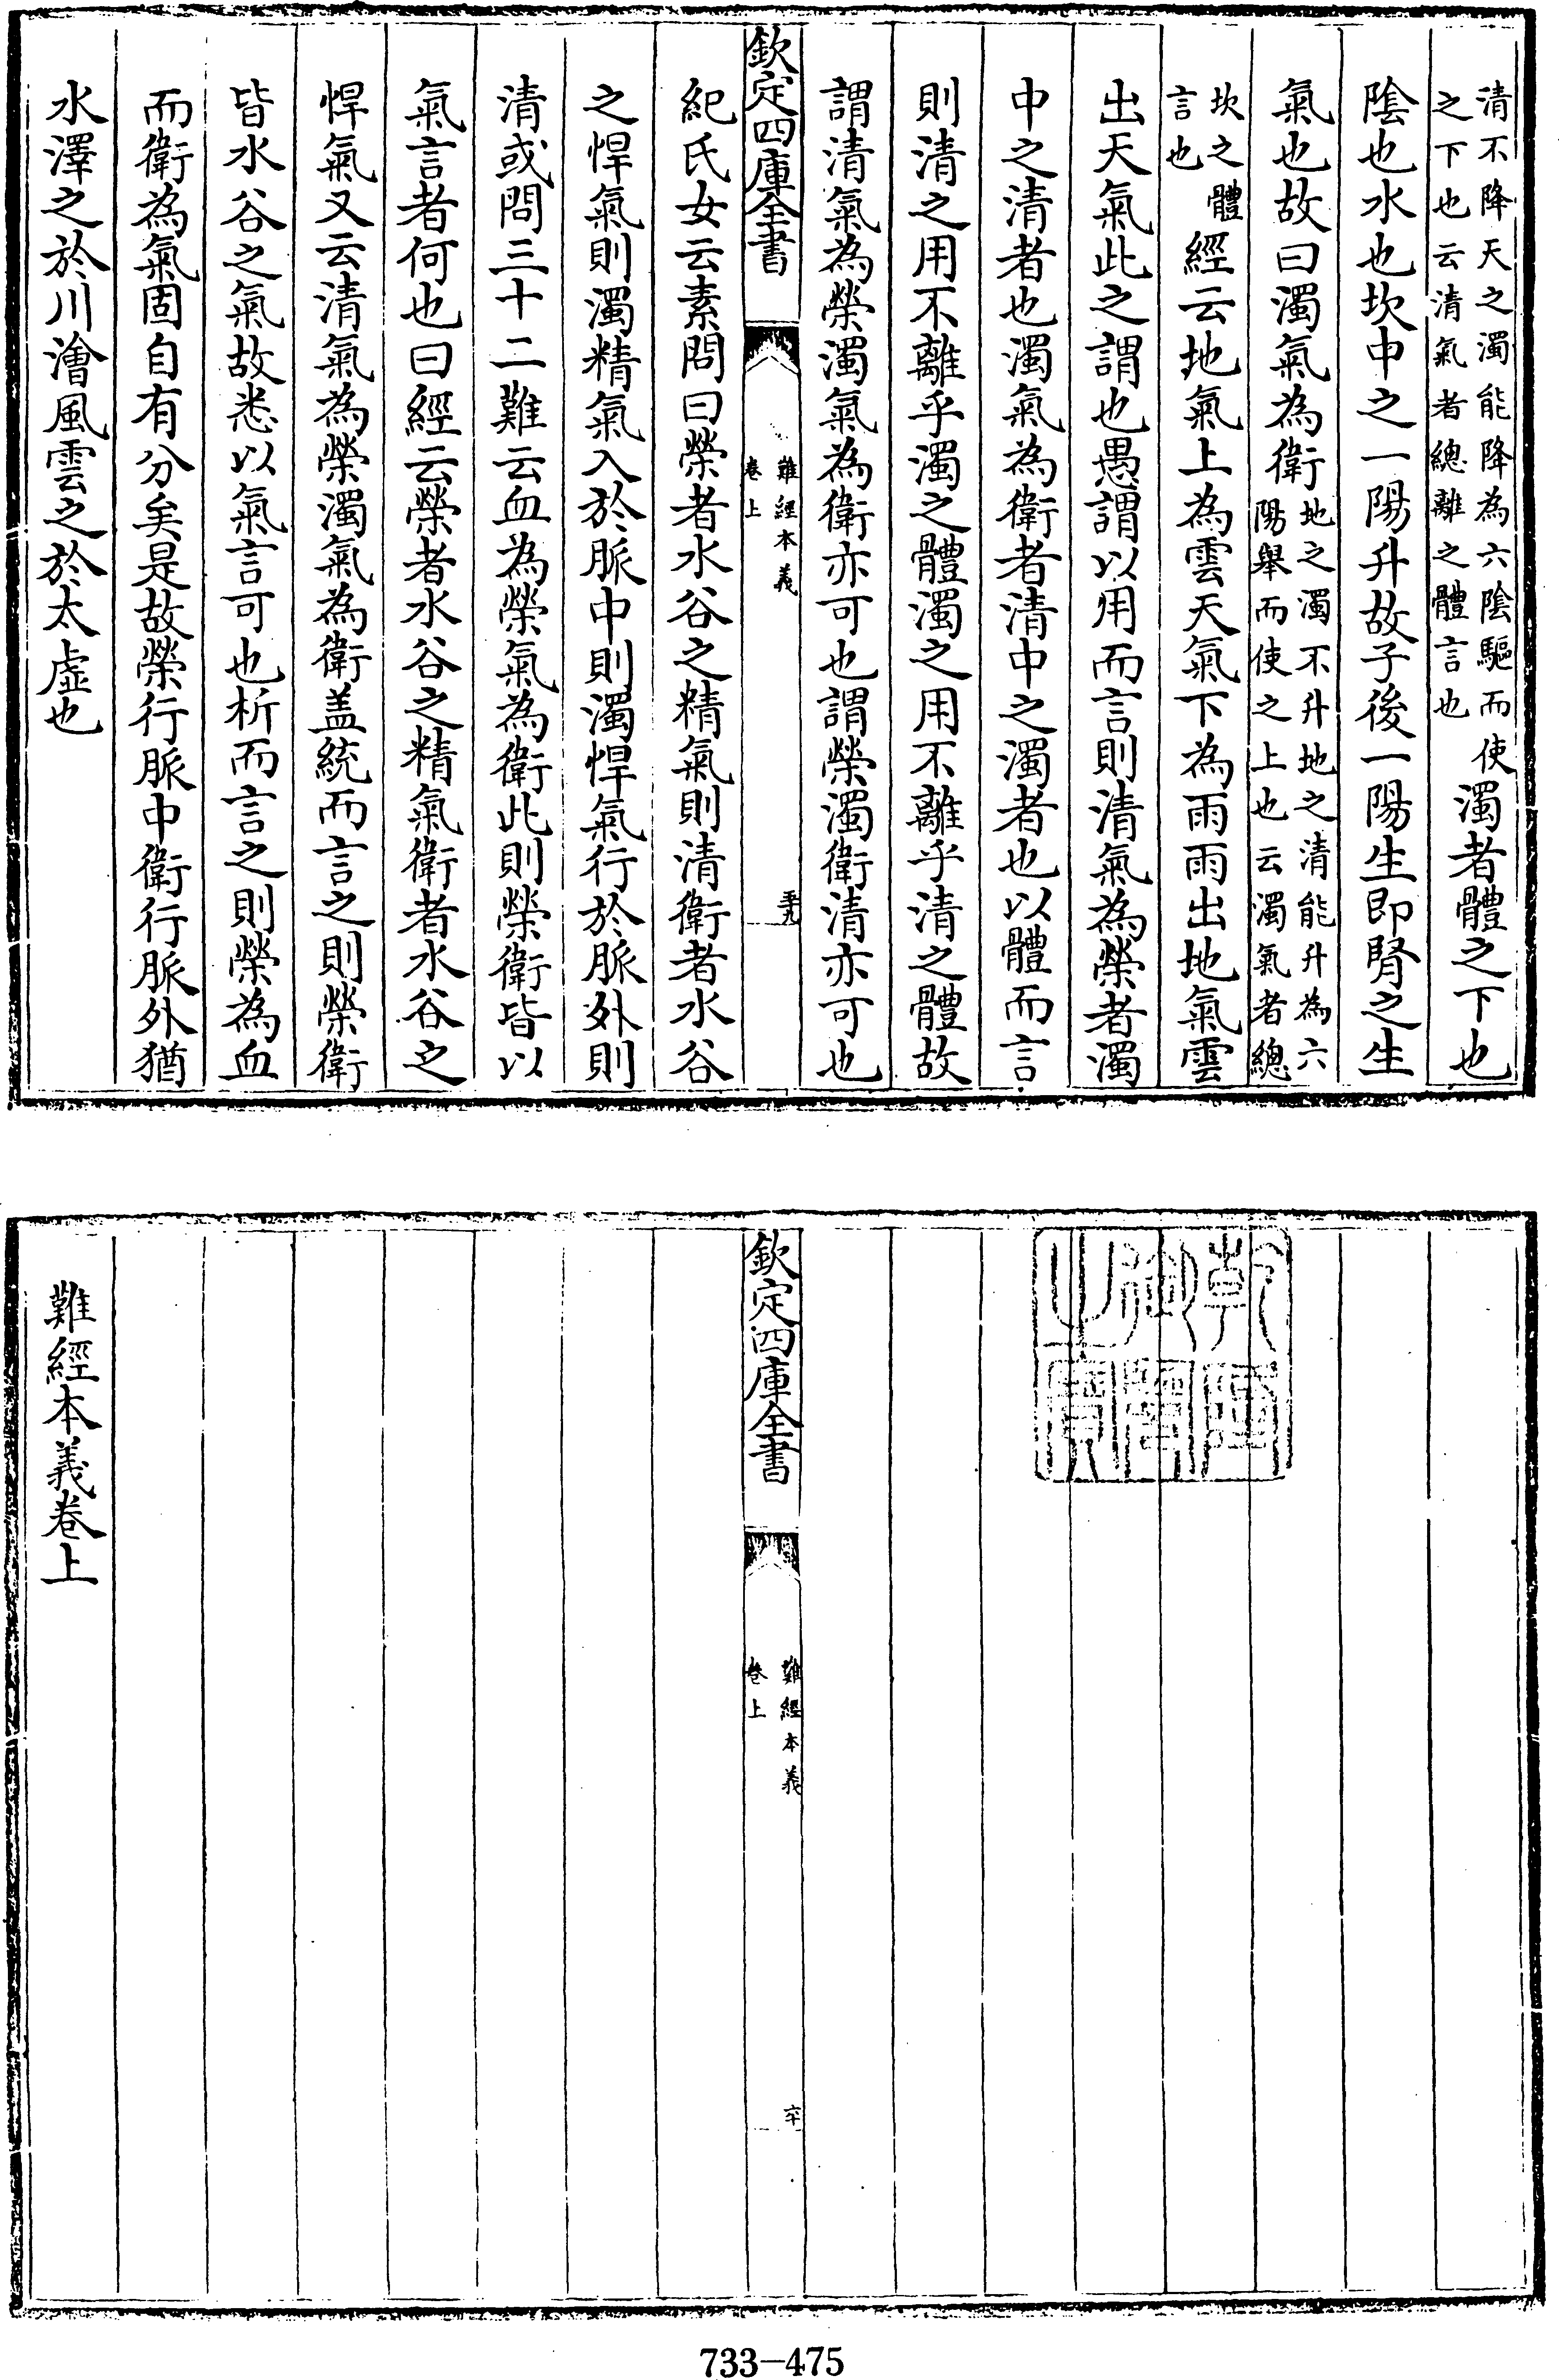 清不降天之濁能降為六陰驅而使
之下也云清氣者總離之體言也
濁者體之下也
陰也水也坎中之一陽升故子後一陽生即腎之生
氣也故曰濁氣為衛
地之濁不升地之清能升為六
陽舉而使之上也云濁氣者總
坎之體
言也
經云地氣上為雲天氣下為雨雨出地氣雲
出天氣此之謂也愚謂以用而言則清氣為榮者濁
中之清者也濁氣為衛者清中之濁者也以體而言
則清之用不離乎濁之體濁之用不離乎清之體故
謂清氣為榮濁氣為衛亦可也謂榮濁衛清亦可也
欽定四庫全書
難經本義
卷上
五十九
紀氏女云素問曰榮者水谷之精氣則清衛者水谷
之悍氣則濁精氣入於脈中則濁悍氣行於脈外則
清或問三十二難云血為榮氣為衛此則榮衛皆以
氣言者何也曰經云榮者水谷之精氣衛者水谷之
悍氣又云清氣為榮濁氣為衛盖統而言之則榮衛
皆水谷之氣故悉以氣言可也析而言之則榮為血
而衛為氣固自有分矣是故榮行脈中衛行脈外猶
水澤之於川澮風雲之於太虛也
乾隆御覽之寶
欽定四庫全書
難經本義
卷上
六十
難經本義卷上
733-475